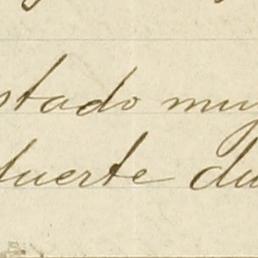 stado muy
fuerte du